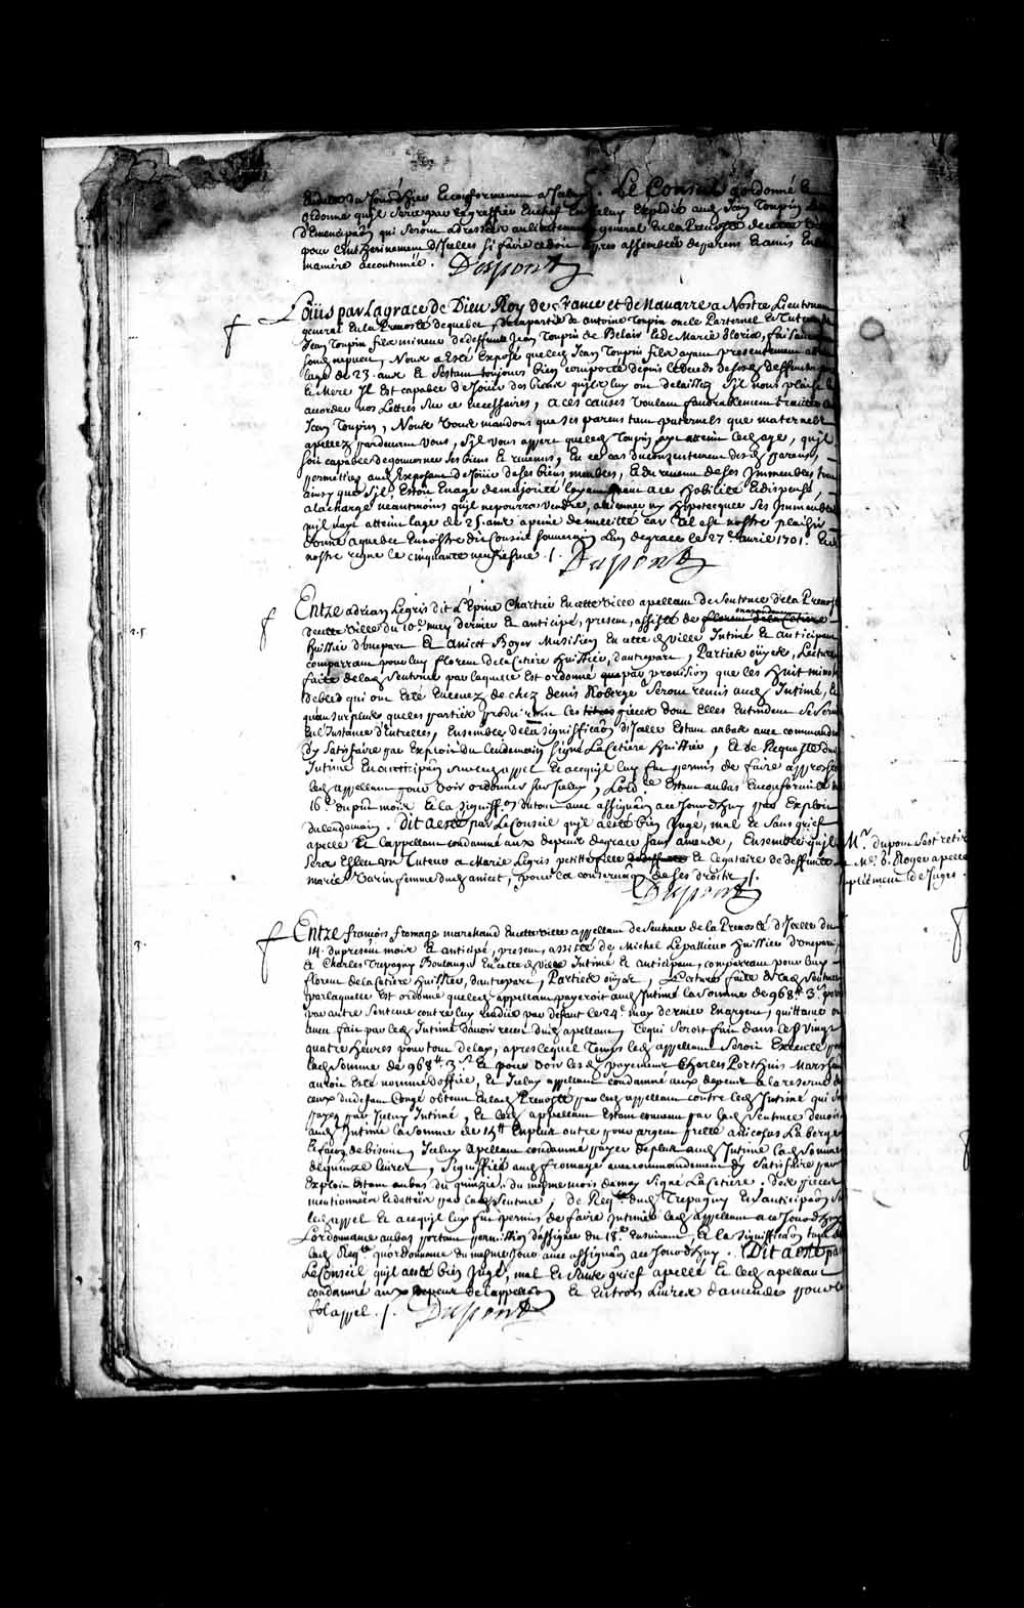 Le Conseil a ordonné et
ordonne qu'il sera par le greffier en chef en iceluy Expedié aud Jean Toupin
d'Emancipaon qui seront adressées au lieutenant general En la Prevosté de cette
pour L'entherinement d'Icelles si faire ce doit apres assemblée de parens Et amis En la
maniere accoutumée. Dupont
Loüis par la grace de Dieu Roy de France et de Navarre a Nostre Lieutenant
general En la Prevosté de quebec, de la partie de antoine Toupin oncle Paternel Et Tuteur de
Jean Toupin fils mineur de deffunts Jean Toupin de Belair Et de Marie Gloria, faisant
sond nepveu, Nous a Esté Exposé que led Jean Toupin fils ayant presentement atteint
lage de 23. ans Et sestant toujours bien comporté depuis le deceds de ses deffunts pere
Et Mere Il Est capable de Jouir des biens qu'ils luy ont delaissez S'il nous plaist luy
accorder nos Lettres sur ce necessaires, a ces causes voulant favorablement traitter led
Jean Toupin, Nous Vous mandons que ses parens tant paternels que maternels
apellez pardevant vous, s'il vous appert que led Toupin aye atteint led age, qu'il
soit capable de gouverner ses biens Et revenus, En ce cas du consentement desd parens,
permettiez aud Exposant de Jouir de ses biens meubles, Et du revenu de ses Immeubles tout
ainsy que s'il Estoit En age de majorité
a la charge neantmoins qu'il ne pourra vendre, aliener ny hipotecquer ses Immeubles
qu'il naye atteint lage de 25. ans a peine de nullité car tel est nostre plaisir
donné a quebec En nostre dit Conseil souverain Lan de grace le 27e avril 1701. Et de
nostre regne le cinquante neufiesme ./. Dupont
Entre adrian Legris dit L'Epine Chartier En cette ville apellant de Sentence de la Prevosté
de cette ville du 10e may dernier Et anticipé, present, assisté de florent de la Cetiere
huissier d'une part Et anicet Boyer Musisien En cette d ville Intimé Et anticipant
comparant pour luy florent de la Cetiere huissier, d'autre part, Parties ouyes, Lecture
faite de lad Sentence par laquelle Est ordonné que par provision que les huit minots
de bled qui ont Esté Enlevez de chez denis Roberge seront remis aud Intimé, Et
qu'au surplus que les parties produiront les titres pieces dont elles Entendent se servir
En L'Instance d'Entrelles, Ensemble de la signiffication d'Icelle Estant au bas avec commandemt
d'y satisfaire par Exploit du lendemain signé La Cetiere huissier, Et de Requeste dud
Intimé En anticipaon sur led appel Et a ce qu'il luy fut permis de faire approcher
led appellant pour voir ordonner sur Iceluy, Lordce Estant au bas En conformité du
16e du pnt mois Et la signiffon du tout avec assignaon a ce Jourdhuy par Exploit
du lendemain. Dit a esté par Le Conseil qu'il a esté bien Jugé, mal Et sans grief
apellé Et L'appellant condamné aux depens de grace sans amende, Ensemble qu'il
sera Elleu un Tuteur a Marie Legris petitte fille Et Legataire de deffunte
marie Varin femme dud anicet, pour la conservaon de ses droits ./.
Dupont
Mr dupont s'est retiré
Me d. Royer apellé
supléement de Juges.
Entre françois fromage marchand En cette ville appellant de Sentence de la Prevosté d'Icelle du
14. du present mois Et anticipé, present, assisté de Michel Lepallieur huissier d'une part,
Et Charles Trepagny Boulanger En cette d ville Intimé Et anticipant, comparant pour luy
florent de la Cetiere huissier, d'autre part, Parties ouyes, Lecture faite de lad Sentence
par laquelle Est ordonné que led appellant payeroit aud Intimé la somme de 968tt 3s
par autre Sentence contre luy rendue par deffaut le 24e may dernier En argent, quittance ou
bien fait par led Intimé d'avoir receu dud apellant, Ce qui seroit fait dans led vingt
quatre heures pour tout delay, apres lequel Temps led appellant seroit Executé pour
lad somme de 968tt 3s Et pour voir lesd payemens Charles Perthuis Marchand
auroit Esté nommé d'office, Et Iceluy appellant condamné aux depens a la reserve de
ceux du defaut Congé obtenu En lad Prevosté par led appellant contre led Intimé qui seront
payez par Iceluy Intimé, Et led appellant Estant convenu par lad Sentence devoir
aud Intimé la somme de 15tt En plus outre
Iceluy Apellant condamné payer de plus aud Intimé lad somme
de quinze livres, Signiffiée aud fromage avec commandement d'y satisfaire par
Exploit Estant au bas du quinzie. du mesme mois de may signé La Cetiere. Des pieces
mentionnées Et dattées par lad Sentence, de Reqte dud Trepagny En anticipaon sur
led appel Et a ce qu'il luy fut permis de faire Intimer led appellant a ce Jourdhuy
Lordonnance au bas portant permission d'assigner du 18e Ensuivant, Et la signiffication tant de
lad Reqte qu'ordonnance du mesme Jour avec assignaon a ce Jourdhuy. Dit a esté par
Le Conseil qu'il a esté bien Jugé, mal Et sans grief apellé Et led apellant
condamné aux depens de L'appellaon Et En trois Livres d'amende pour le
fol appel ./. Dupont